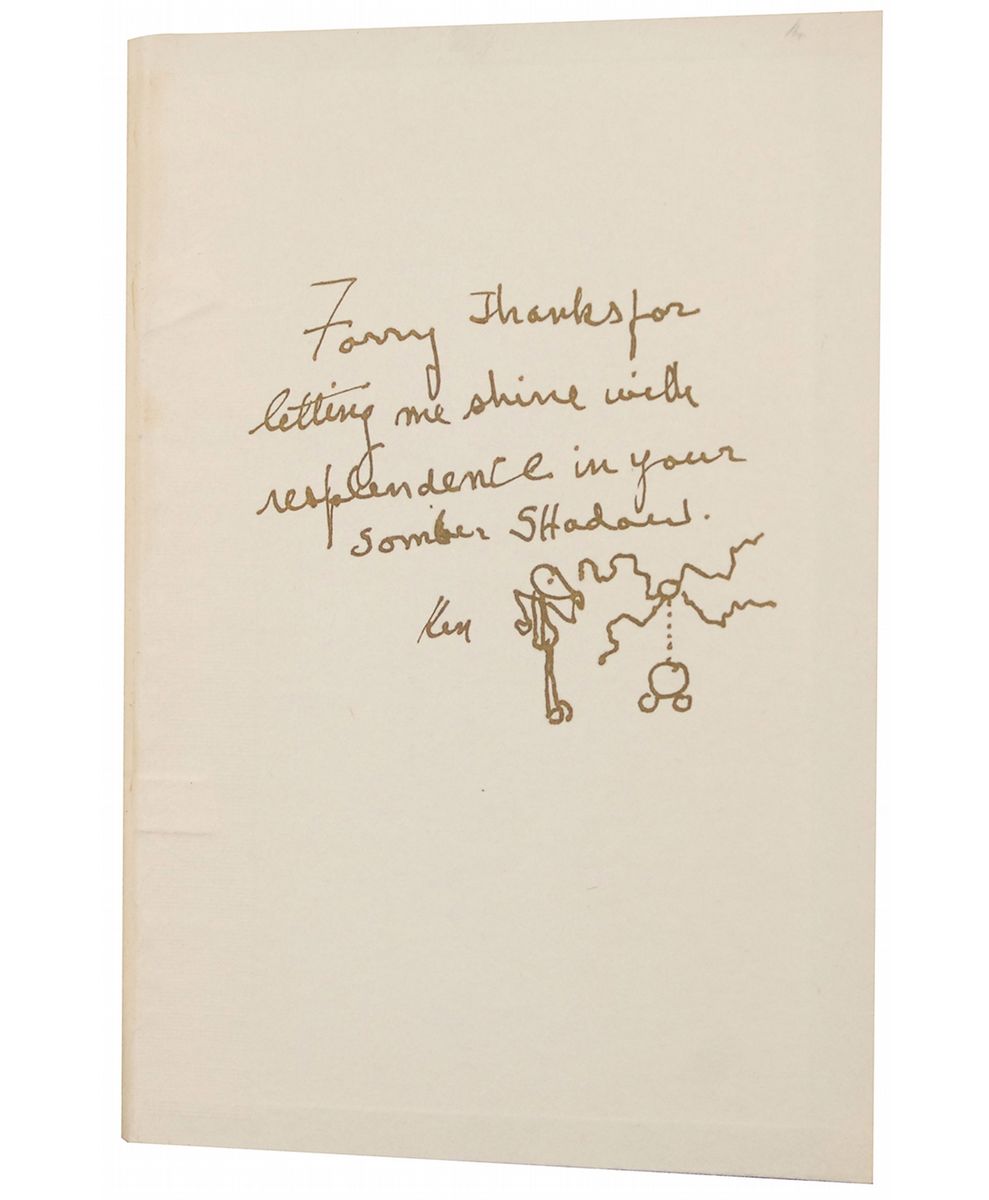 Forry Thanks for
letting me shine with
resplendence in your
somber SHadow.
Ken